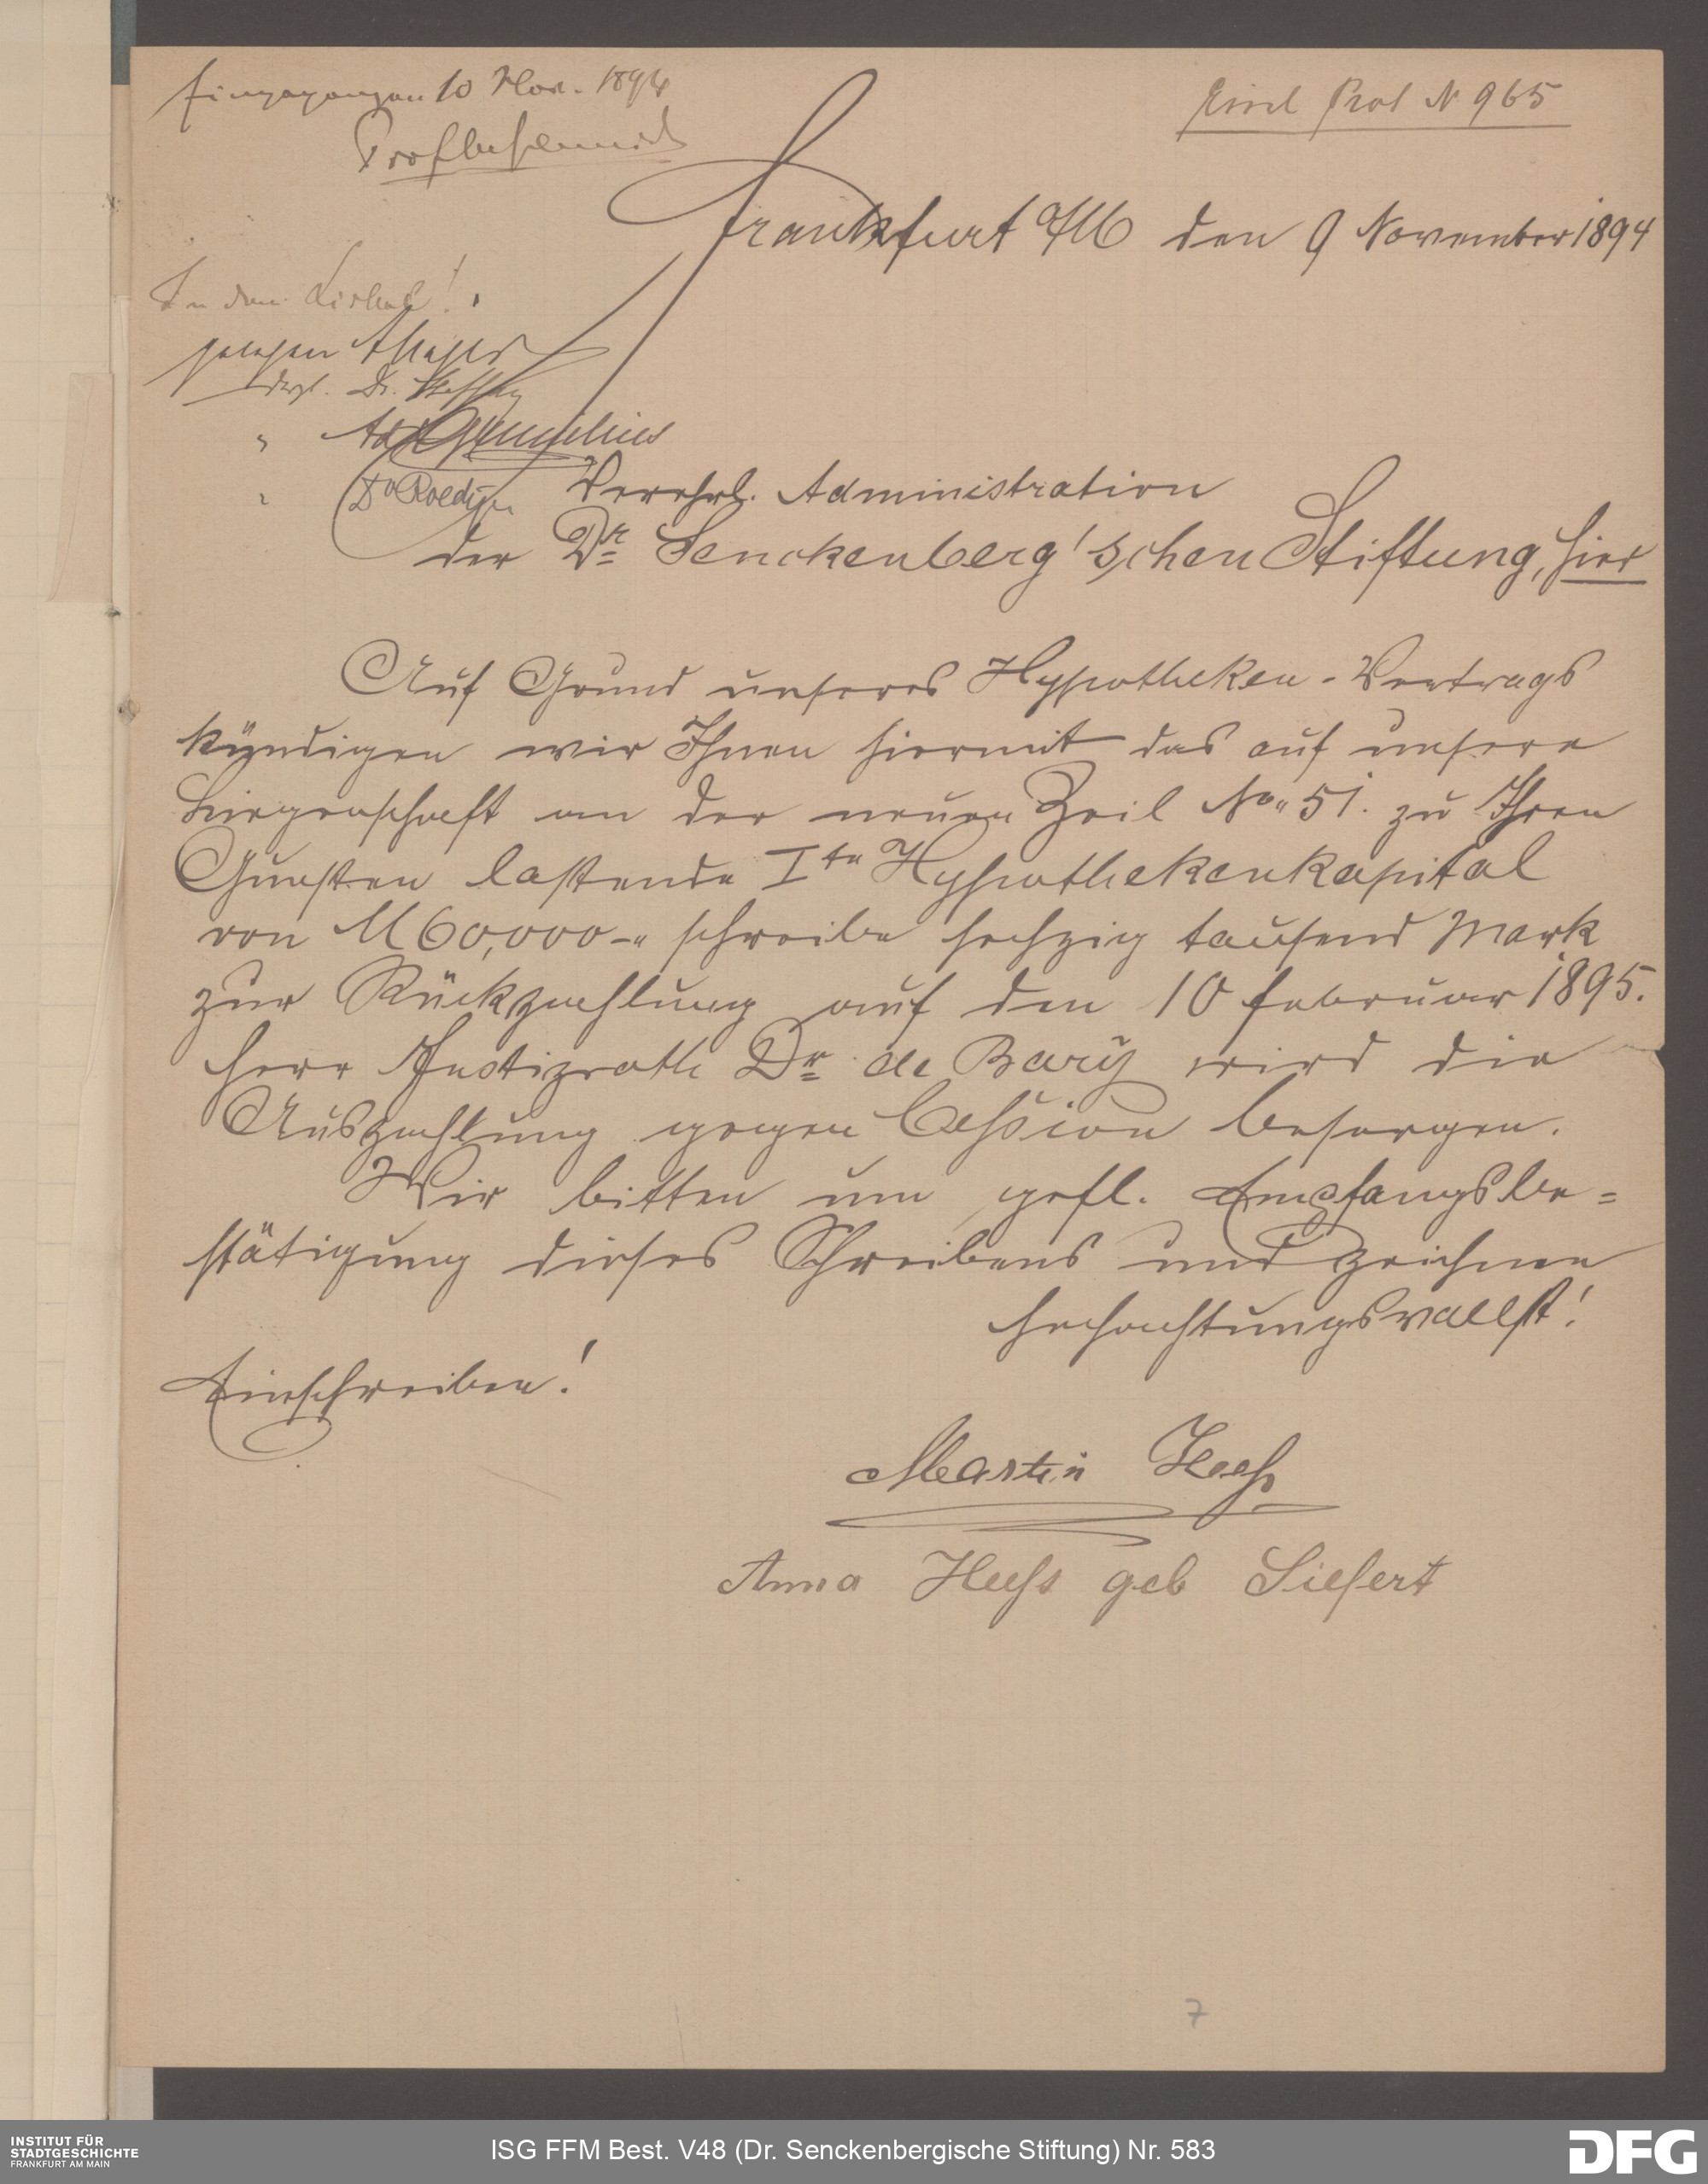 Eingegangen 10 Nov. 1894
Prot N 965
Frankfurt a/M den 9 November 1894
gelesen
Dr Roediger
Verehrl. Administration
der Dr Senckenberg'schen Stiftung, hier
Auf Grund unseres Hypotheken-Vertrags
kündigen wir Ihnen hiermit das auf unsere
Liegenschaft an der neuen Zeil No 51. zu Ihren
Gunsten lastende Ite Hypothekenkapital
von M 60,000-„ schreibe sechzig tausend Mark
zur Rückzahlung auf den 10 Februar 1895.
Herr Justizrath Dr de Bary wird die
Auszahlung gegen Cession besorgen.
Wir bitten um gefl. Empfangsbe=
stätigung dieses Schreibens und zeichnen
hochachtungsvollst!
Einschreiben!
Martin Heß
Anna Heß geb Siefert
7
INSTITUT FÜR
STADTGESCHICHTE
FRANKFURT AM MAIN
ISG FFM Best. V48 (Dr. Senckenbergische Stiftung) Nr. 583
DFG